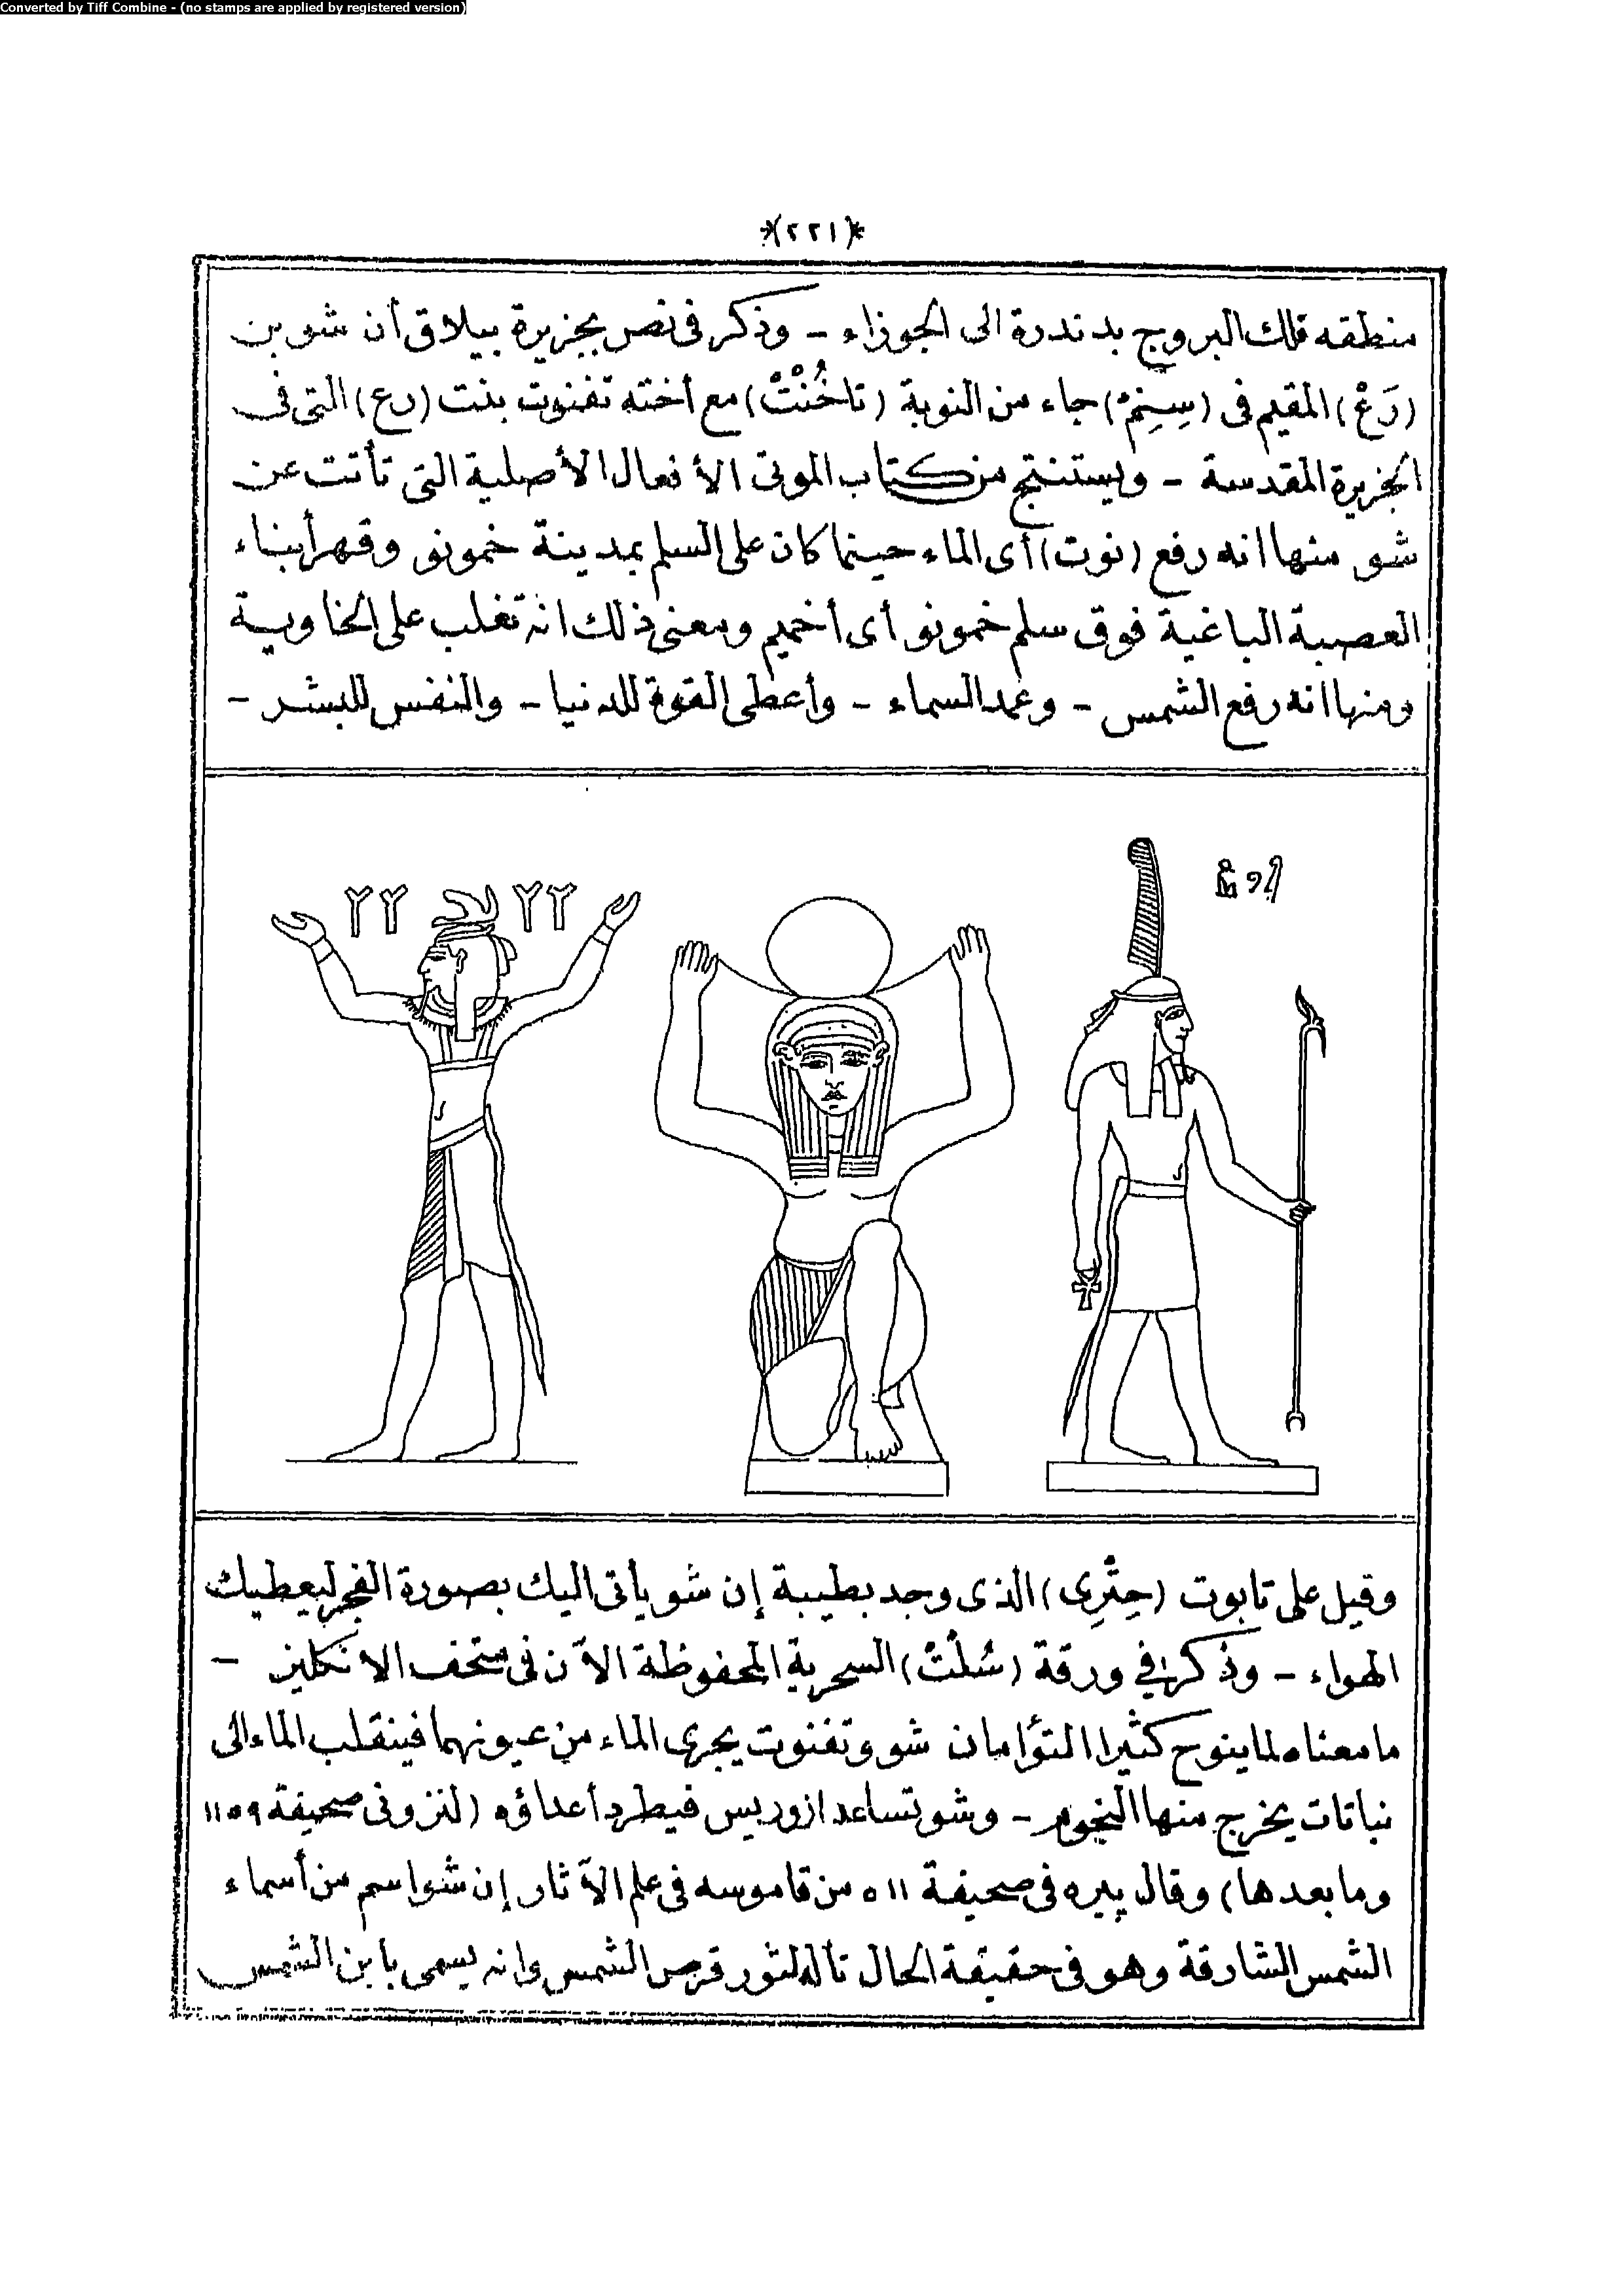 Converted by Tiff Combine - (no stamps are applied by registered version)
*(٢٢١)*
منطقه فلك البروج بدندرة الى الجوزاء - وذكر فى نص بجزيرة بيلاق أن شو بن
(رَعْ) المقيم فى (سِنِمْ) جاء من النوبة (تاخُنْتْ) مع أخته تفنوت بنت (رع) التى فى
الجزيرة المقدسة - ويستنتج من كتاب الموتى الأفعال الأصلية التى تأتت عن
شو منها انه رفع (نوت) أى الماء حينما كان على السلم بمدينة خمونو وقهر أبناء
العصبة الباغية فوق سلم خمونو أى أخميم ومعنى ذلك انه تغلب على الخاوية
ومنها انه رفع الشمس - وعمد السماء - وأعطى القوة للدنيا - والنفس للبشر -
وقيل على تابوت (حِتْرِى) الذى وجد بطيبة إن شو يأتى اليك بصورة الفجر ليعطيك
الهواء - وذكر فى ورقة (سُلْتْ) السحرية المحفوظة الآن فى متحف الانكليز -
ما معناه لما ينوح كثيرا التؤامان شو وتفنوت يجرى الماء من عيونهما فينقلب الماء الى
نباتات يخرج منها البخور - وشو تساعد ازوريس فيطرد أعداؤه (لنزونى صحيفة ١١٥٩
وما بعدها) وقال پيره فى صحيفة ٥١١ من قاموسه فى علم الآثار إن شو اسم من أسماء
الشمس الشارقة وهو فى حقيقة الحال تأله لنور قرص الشمس وانه يسمى بابن الشمس